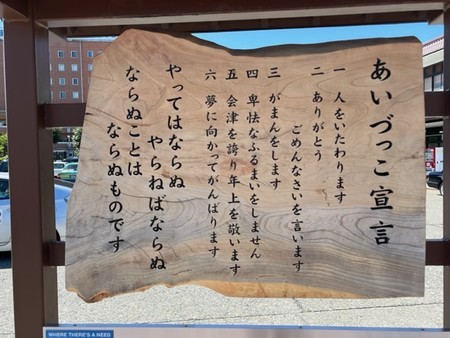 あいづっこ宣言
一 人をいたわります
二 ありがとう
ごめんなさいを言います
三 がまんをします
四 卑怯なふるまいをしません
五 会津を誇り年上を敬います
六 夢に向かってがんばります
やってはならぬ
やらねばならぬ
ならぬことは
ならぬものです
WHERE THERE'S A NEED